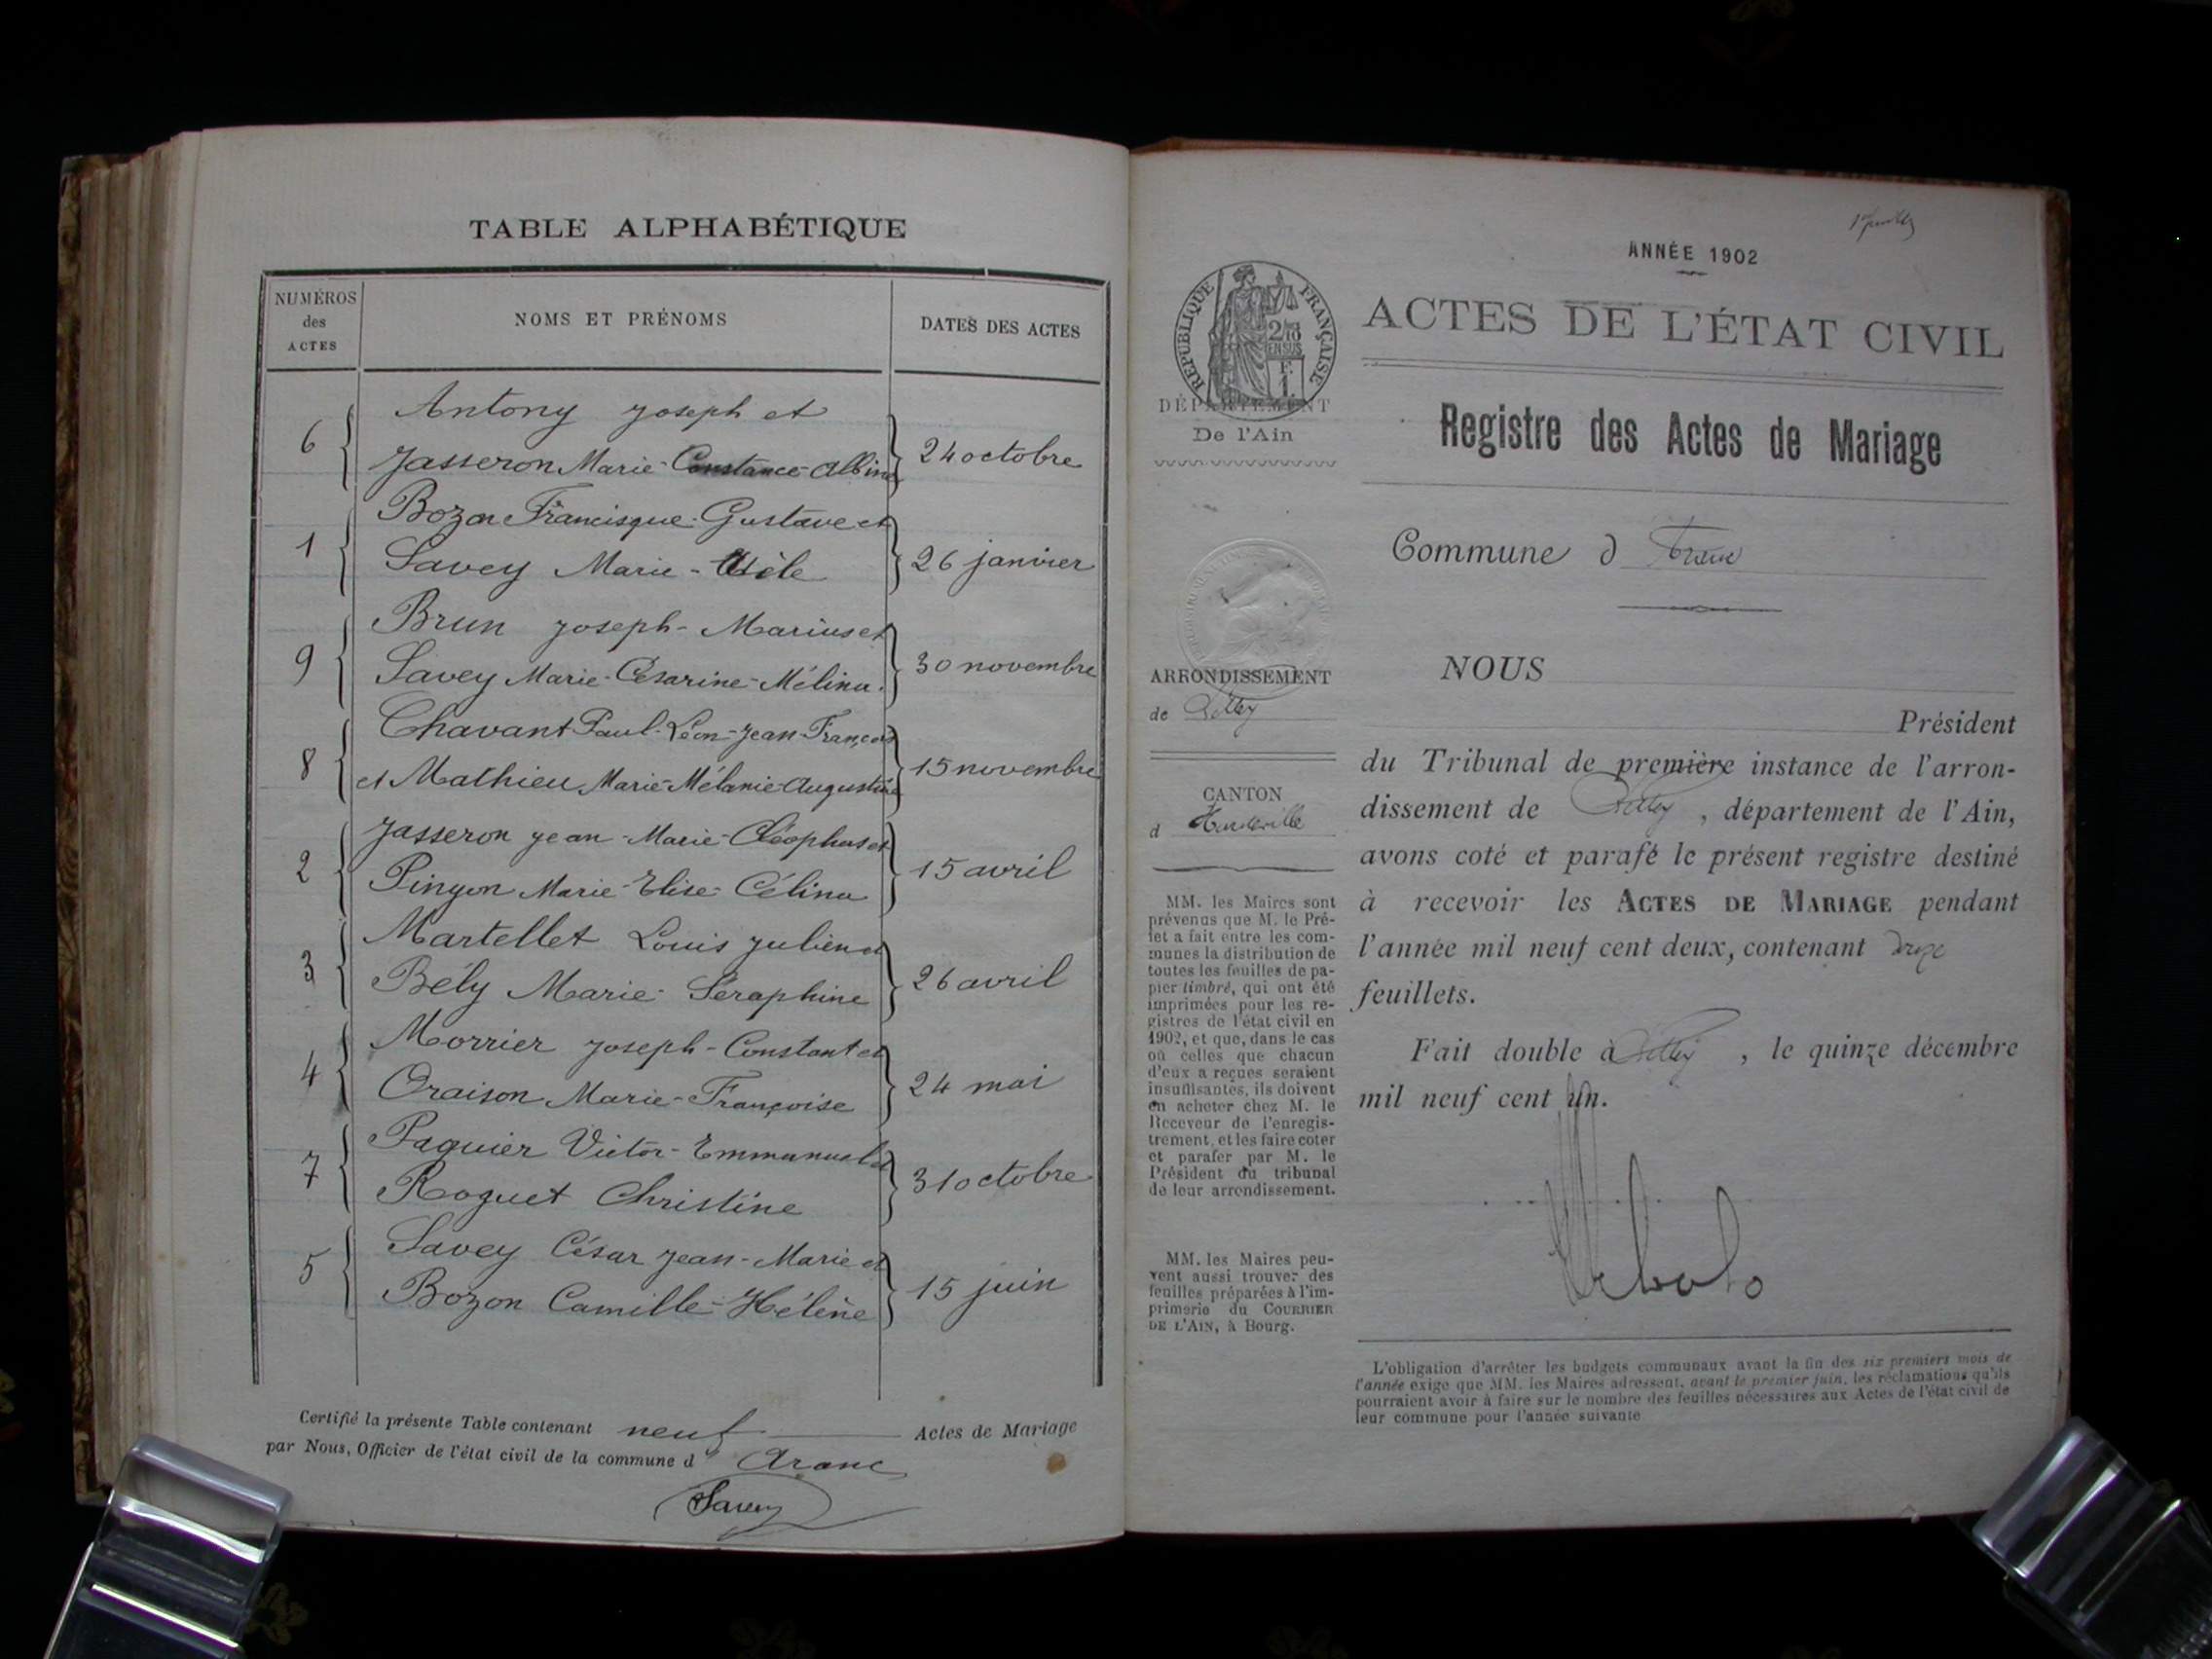 TABLE ALPHABÉTIQUE
NUMÉROS
des
ACTES
NOMS ET PRÉNOMS
DATES DES ACTES
Antony Joseph et
6
Jasseron Marie-Constance-Albine
24 octobre
Bozon Francisque-Gustave et
1
Savey Marie-Adèle
26 janvier
Brun Joseph-Marius et
9
Savey Marie-Césarine-Mélina.
30 novembre
Chavant Paul-Léon-Jean-François
8
et Mathieu Marie-Mélanie-Augustine
15 novembre
Jasseron Jean-Marie-Cléophas et
2
Pingon Marie-Elise-Célina
15 avril
Martellet Louis Julien et
3
Bély Marie-Séraphine
26 avril
Morrier Joseph-Constant et
4
Oraison Marie-Françoise
24 mai
Paquier Victor-Emmanuel et
7
Roguet Christine
31 octobre
Savey César Jean-Marie et
5
Bozon Camille-Hélène
15 juin
Certifié la présente Table contenant neuf Actes de Mariage
par Nous, Officier de l'état civil de la commune d'Aranc
Savey
ANNÉE 1902
RÉPUBLIQUE FRANÇAISE
2/10
EN SUS
F.
1.
DÉPARTEMENT
De l'Ain
ARRONDISSEMENT
de Belley
CANTON
d Hauteville
MM. les Maires sont
prévenus que M. le Pré-
fet a fait entre les com-
munes la distribution de
toutes les feuilles de pa-
pier timbré, qui ont été
imprimées pour les re-
gistres de l'état civil en
1902, et que, dans le cas
où celles que chacun
d'eux a reçues seraient
insuffisantes, ils doivent
en acheter chez M. le
Receveur de l'enregis-
trement, et les faire coter
et parafer par M. le
Président du tribunal
de leur arrondissement.
MM. les Maires peu-
vent aussi trouver des
feuilles préparées à l'im-
primerie du COURRIER
DE L'AIN, à Bourg.
ACTES DE L'ÉTAT CIVIL
Registre des Actes de Mariage
Commune d Aranc
NOUS
Président
du Tribunal de première instance de l'arron-
dissement de Belley, département de l'Ain,
avons coté et parafé le présent registre destiné
à recevoir les ACTES DE MARIAGE pendant
l'année mil neuf cent deux, contenant
feuillets.
Fait double à Belley, le quinze décembre
mil neuf cent un.
L'obligation d'arrêter les budgets communaux avant la fin des six premiers mois de
l'année exige que MM. les Maires adressent, avant le premier juin, les réclamations qu'ils
pourraient avoir à faire sur le nombre des feuilles nécessaires aux Actes de l'état civil de
leur commune pour l'année suivante